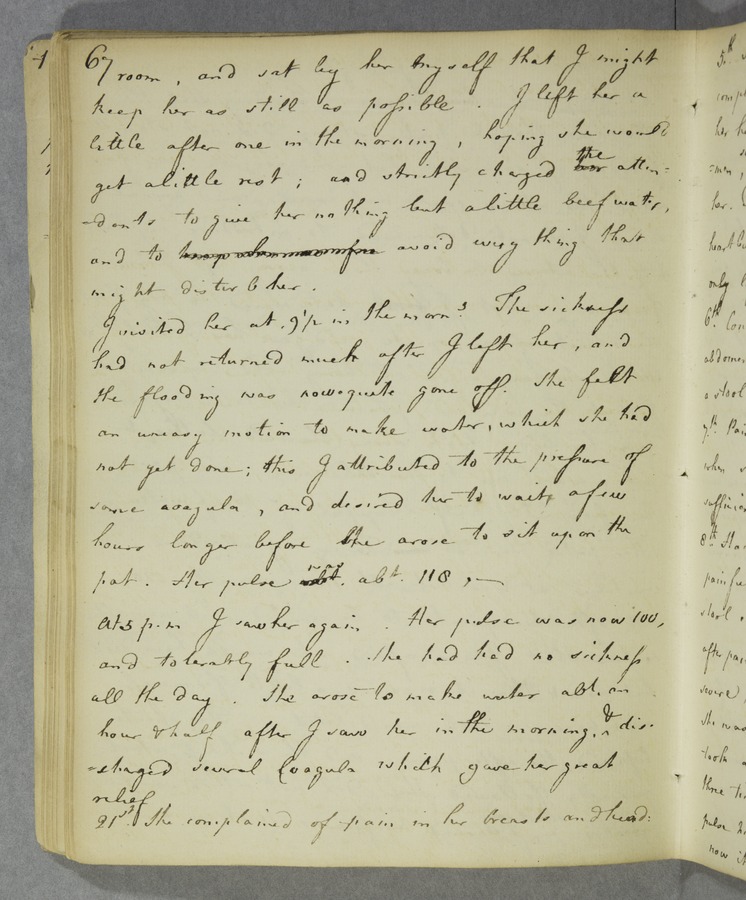 67
room, and sat by her myself that I might
keep her as still as possible. I left her a
little after one in the morning, hoping she would
get a little rest; and strictly charged the atten-
-dants to give her nothing but a little beef water,
and to avoid every thing that
might disturb her.
I visited her at 9 1/2 in the morng. The sickness
had not returned much after I left her, and
the flooding was now quite gone off. She felt
an uneasy motion to make water, which she had
not yet done; this I attributed to the pressure of
some coagula, and desired her to wait a few
hours longer before she arose to sit upon the
pot. Her pulse was abt. 118,—
At 3 p.m I saw her again. Her pulse was now 100,
and tolerably full. She had had no sickness
all the day. She arose to make water abt. an
hour & half after I saw her in the morning, & dis-
-charged several Coagula which gave her great
relief
21st. She complained of pain in her breasts and head: